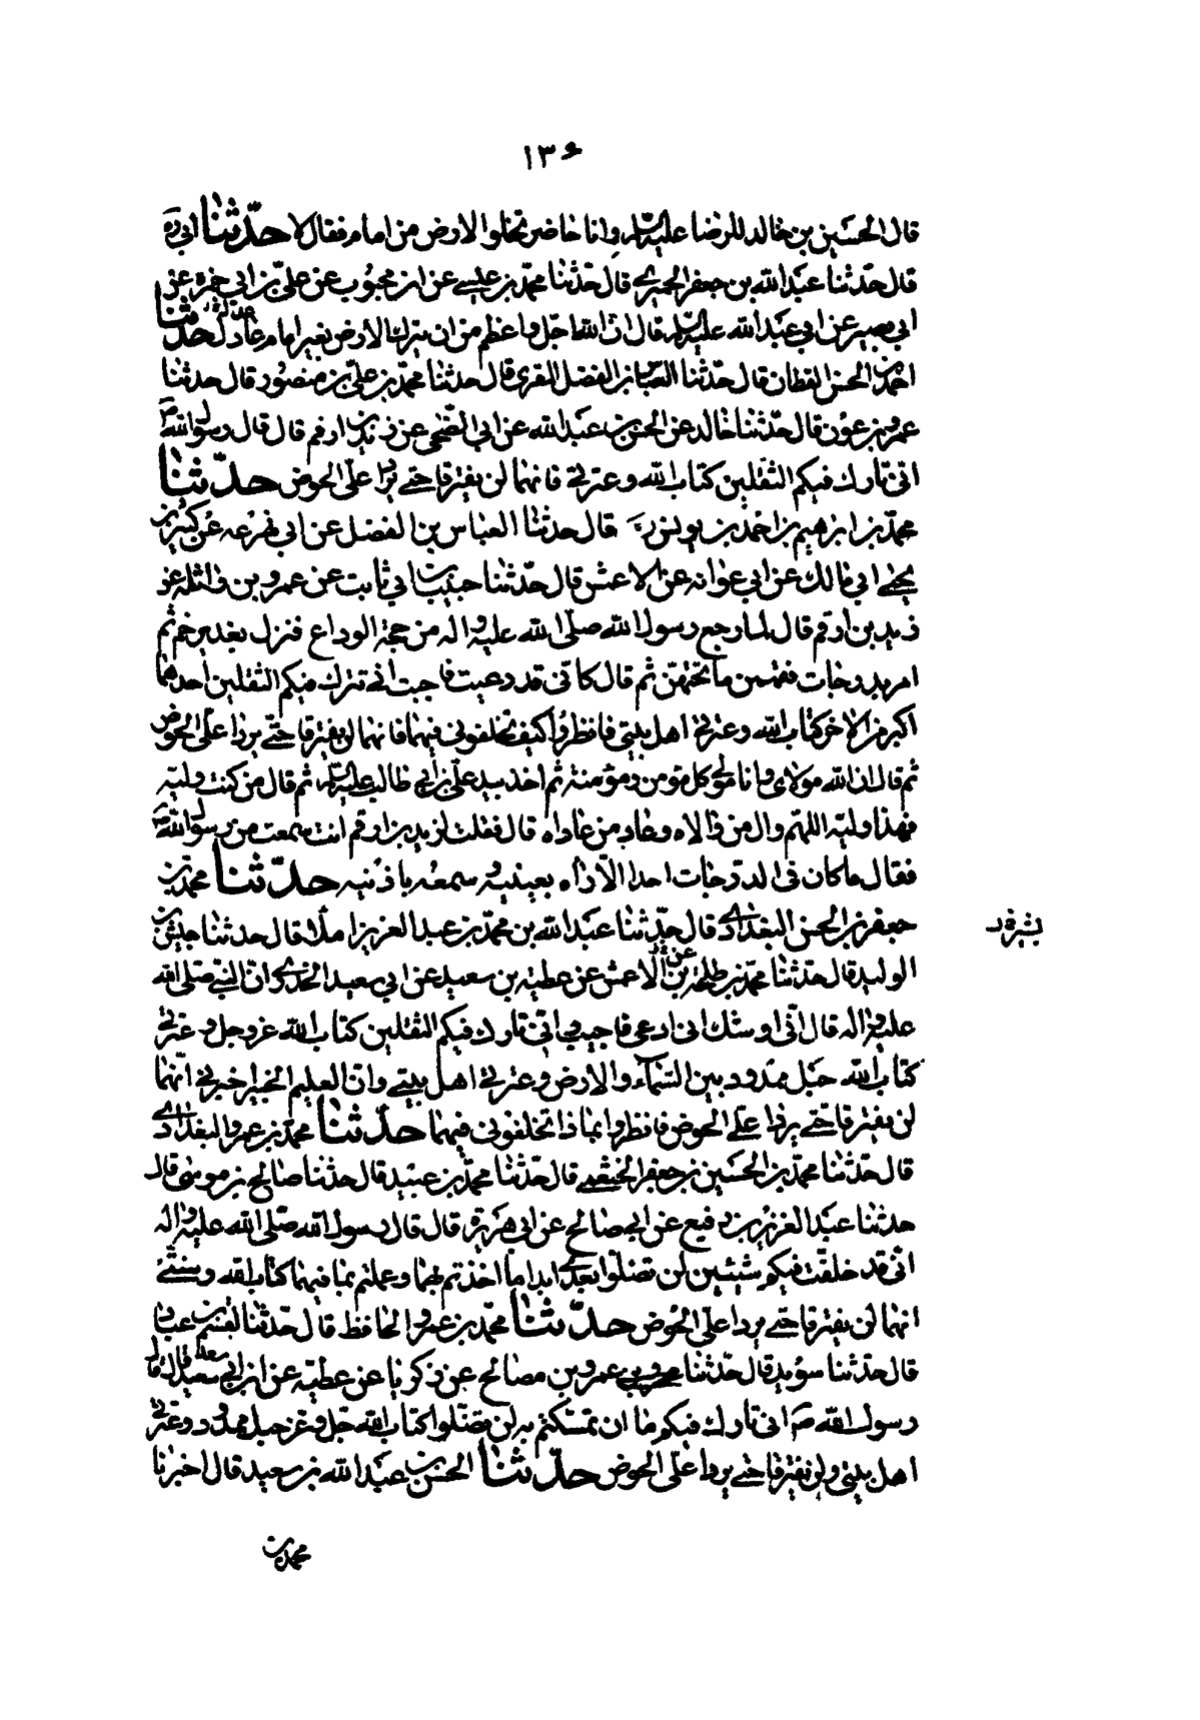 ١٣۶
قال الحسین بن خالد للرضا علیه السلام وانا حاضر تخلوا الارض من امام فقال لا حدّثنا ابی ره
قال حدّثنا عبد الله بن جعفر الحمیری قال حدّثنا محمّد بن عیسی عن ابن محبوب عن علیّ بن ابی حمزة عن
ابی بصیر عن ابی عبد الله علیه السلام قال انّ الله اجلّ واعظم من ان یترك الأرض بغیر امام عادل حدّثنا
احمد بن الحسن القطان قال حدّثنا العبّاس بن الفضل المقری قال حدثنا محمّد بن علیّ بن منصور قال حدثنا
عمرو بن عون قال حدّثنا خالد عن الحسن بن عبد الله عن ابی الضّحی عن زید بن ارقم قال قال رسول الله ص
انی تارك فیكم الثقلین كتاب الله وعترتی فانهما لن یفترقا حتی یردا علی الحوض حدّثنا
محمّد بن ابرهیم بن احمد بن یونس ره قال حدثنا العباس بن الفضل عن ابی زرعه عن كثیر بن
یحیی ابی مالك عن ابی عوانه عن الاعمش قال حدّثنا حبیب بن ابی ثابت عن عمرو بن واثلة عن
زید بن ارقم قال لما رجع رسول الله صلّی الله علیه واله من حجة الوداع فنزل بغدیر خم ثم
امر بدوحات فقممن ما تحتهنّ ثم قال كانی قد دعیت فاجبت انی تارك فیكم الثقلین احدهما
اكبر من الاخر كتاب الله وعترتی اهل بیتی فانظروا كیف تخلفونی فیهما فانهما لن یفترقا حتّی یردا علی الحوض
ثم قال ان الله مولای وانا مولی كل مؤمن ومؤمنة ثم اخذ بید علیّ بن ابی طالب علیه السلام ثم قال من كنت ولیّه
فهذا ولیّه اللهمّ وال من والاه وعاد من عاداه قال فقلت لزید بن ارقم انت سمعت من رسول الله ص
فقال ما كان فی الدوحات احد الّا رآه بعینیه وسمعه باذنیه حدّثنا محمّد بن
جعفر بن الحسن البغدادی قال حدّثنا عبد الله بن محمّد بن عبد العزیز املاء قال حدثنا جیش بن
الولید قال حدّثنا محمّد بن طلحة عن الاعمش عن عطیة بن سعید عن ابی سعید الخدری انّ النبیّ صلّی الله
علیه واله قال انّی اوشك ان ادعی فاجیب وانّی تارك فیكم الثقلین كتاب الله عز وجل وعترتی
كتاب الله حبل ممدود بین السّمآء والارض وعترتی اهل بیتی وانّ العلیم الخبیر اخبرنی انّهما
لن یفترقا حتّی یردا علیّ الحوض فانظروا بماذا تخلفونی فیهما حدّثنا محمّد بن عمر والبغدادی
قال حدّثنا محمّد بن الحسین بن جعفر الخثعمی قال حدّثنا محمّد بن عبید قال حدثنا صالح بن موسی قال
حدثنا عبد العزیز بن رفیع عن ابی صالح عن ابی هریرة قال قال رسول الله صلّی الله علیه واله
انّی قد خلفت فیكم شیئین لن تضلّوا بعدی ابدا ما اخذتم بهما وعملتم بما فیهما كتاب الله وسنّتی
انهما لن یفترقا حتّی یردا علیّ الحوض حدّثنا محمّد بن عمرو الحافظ قال حدّثنا القسم بن عباد
قال حدّثنا سوید قال حدّثنا عمرو بن صالح عن زكریا عن عطیّه عن ابی سعید قال قال
رسول الله ص انی تارك فیكم ما ان تمسّكتم به لن تضلّوا كتاب الله جلّ وعز حبل ممدود وعترتی
اهل بیتی ولن یفترقا حتّی یردا علی الحوض حدّثنا الحسن بن عبد الله بن سعید قال اخبرنا
محمّد بن